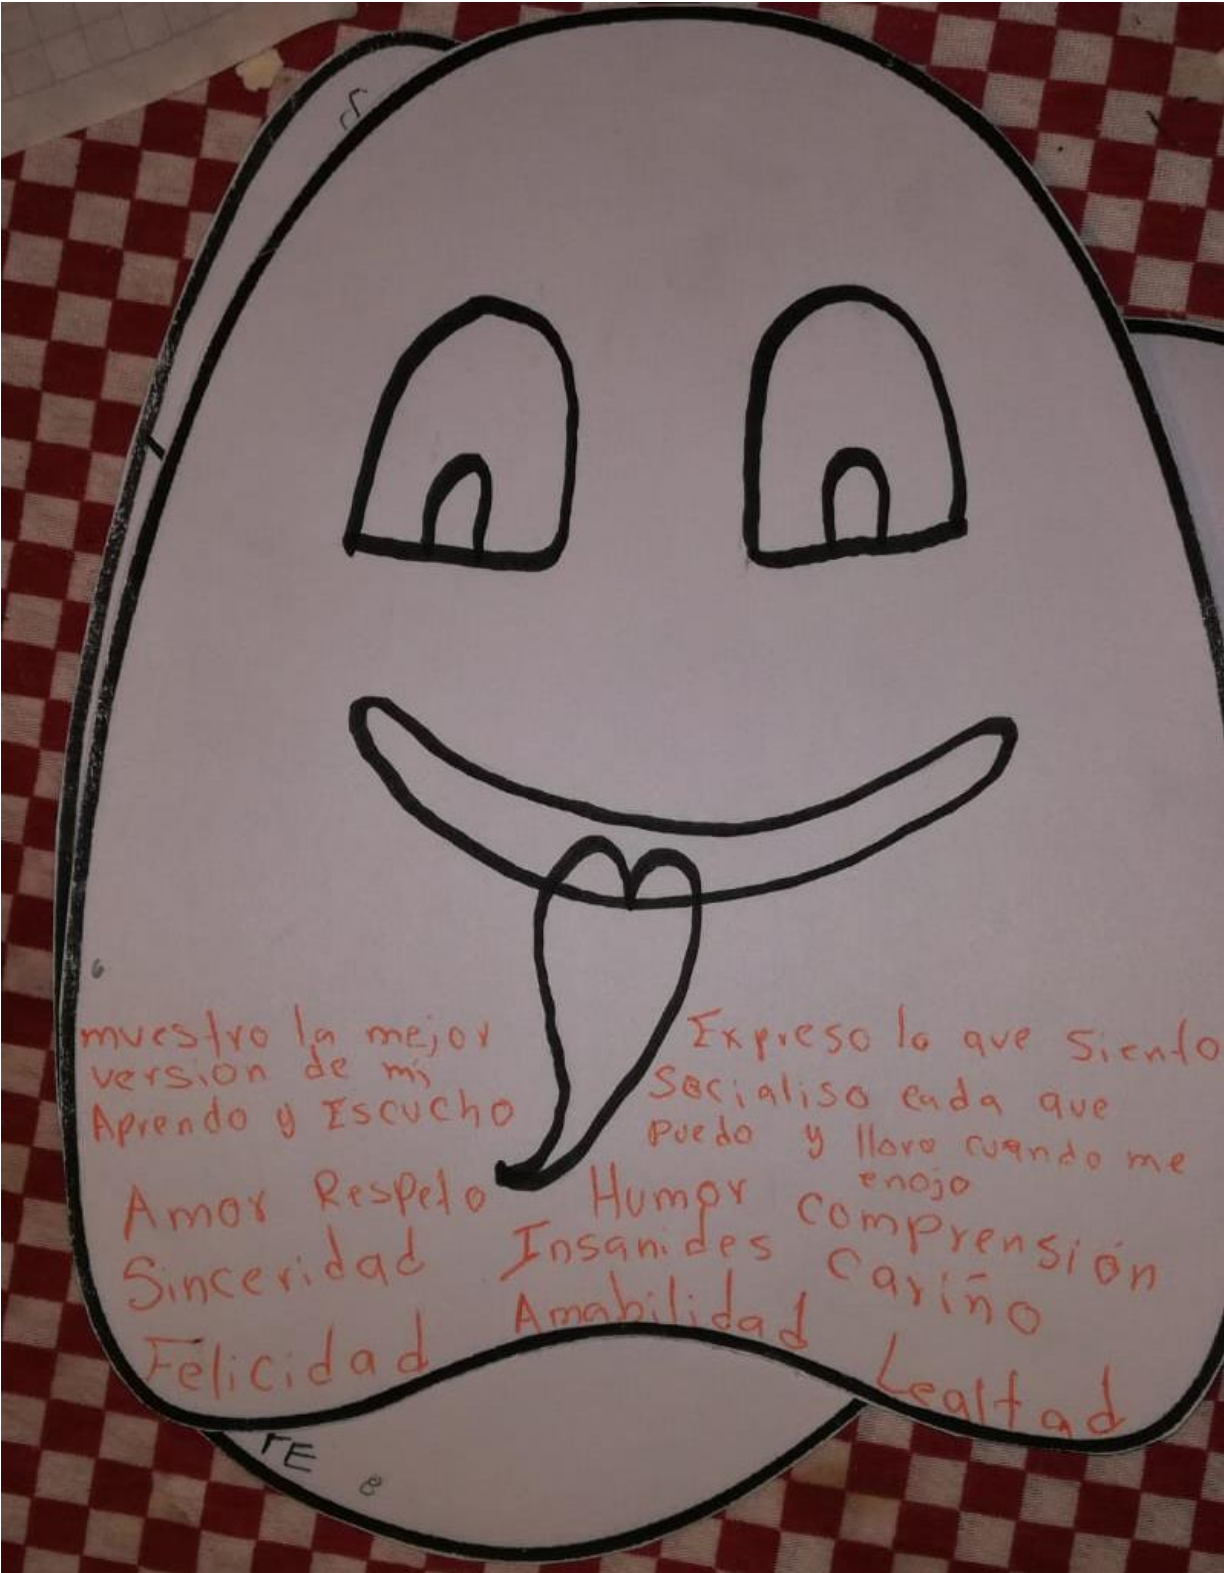 6
muestro la mejor
version de mi
Aprendo y Escucho
Expreso lo que siento
Socialiso cada que
puedo y lloro cuando me
enojo
Amor Respeto Humor comprensión
Sinceridad Insanides Cariño
Felicidad Amabilidad Lealtad
rE 8